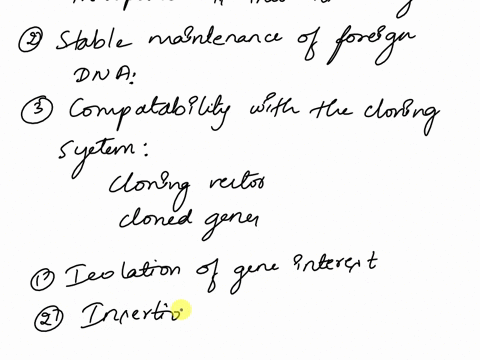 ② Stable maintenance of foreign
DNA:
③ Compatability with the cloning
system:
cloning vector
cloned genes
① Isolation of gene interest
② Insertio